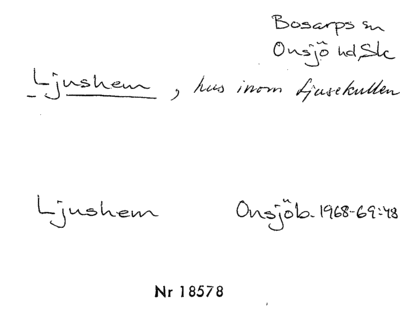 Bosarps sn
Onsjö hd, Sk
Ljushem, hus inom Ljusekullen
Ljushem Onsjöb. 1968-69:48
Nr 18578